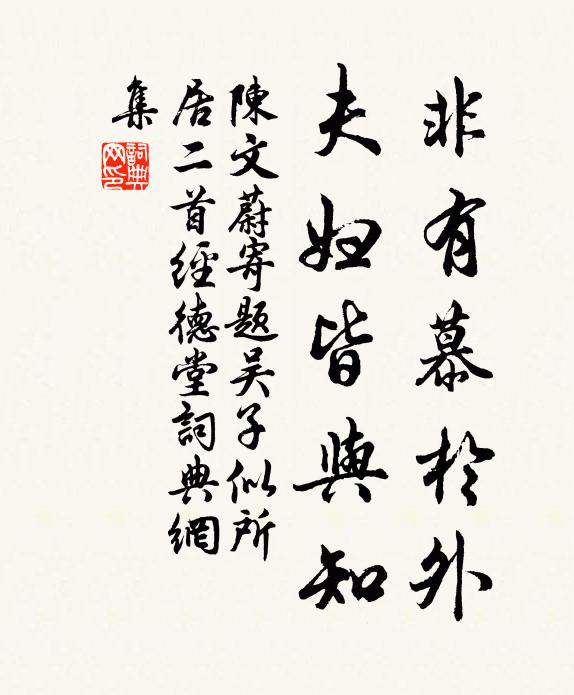 非有慕於外
夫婦皆與知
陳文蔚寄題吴子似所
居二首經德堂詞典網
集
詞典网印